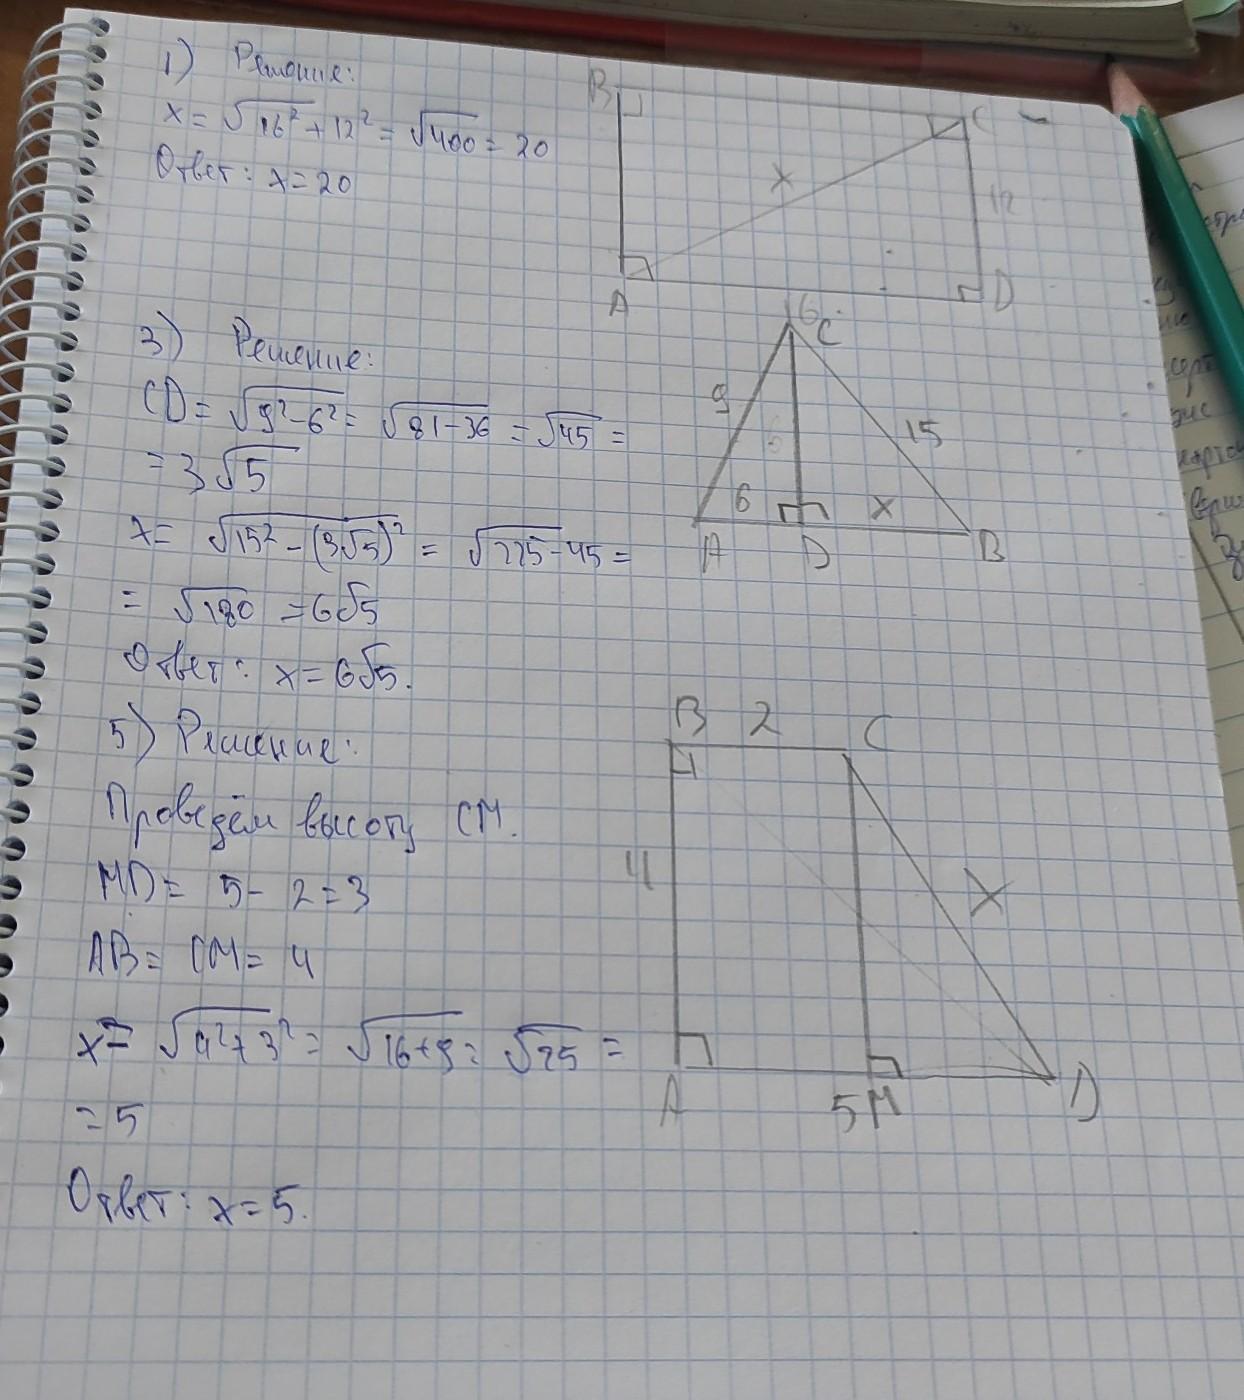 1) Решение:
x = √16² + 12² = √400 = 20
Ответ: x = 20
B
C
x
12
A
D
16
3) Решение:
CD = √9² - 6² = √81 - 36 = √45 =
= 3√5
x = √15² - (3√5)² = √225 - 45 =
= √180 = 6√5
Ответ: x = 6√5.
C
9
15
6
x
A
D
B
5) Решение:
Проведём высоту CM.
MD = 5 - 2 = 3
AB = CM = 4
x = √4² + 3² = √16 + 9 = √25 =
= 5
Ответ: x = 5.
B 2 C
4
X
A
5 M
D